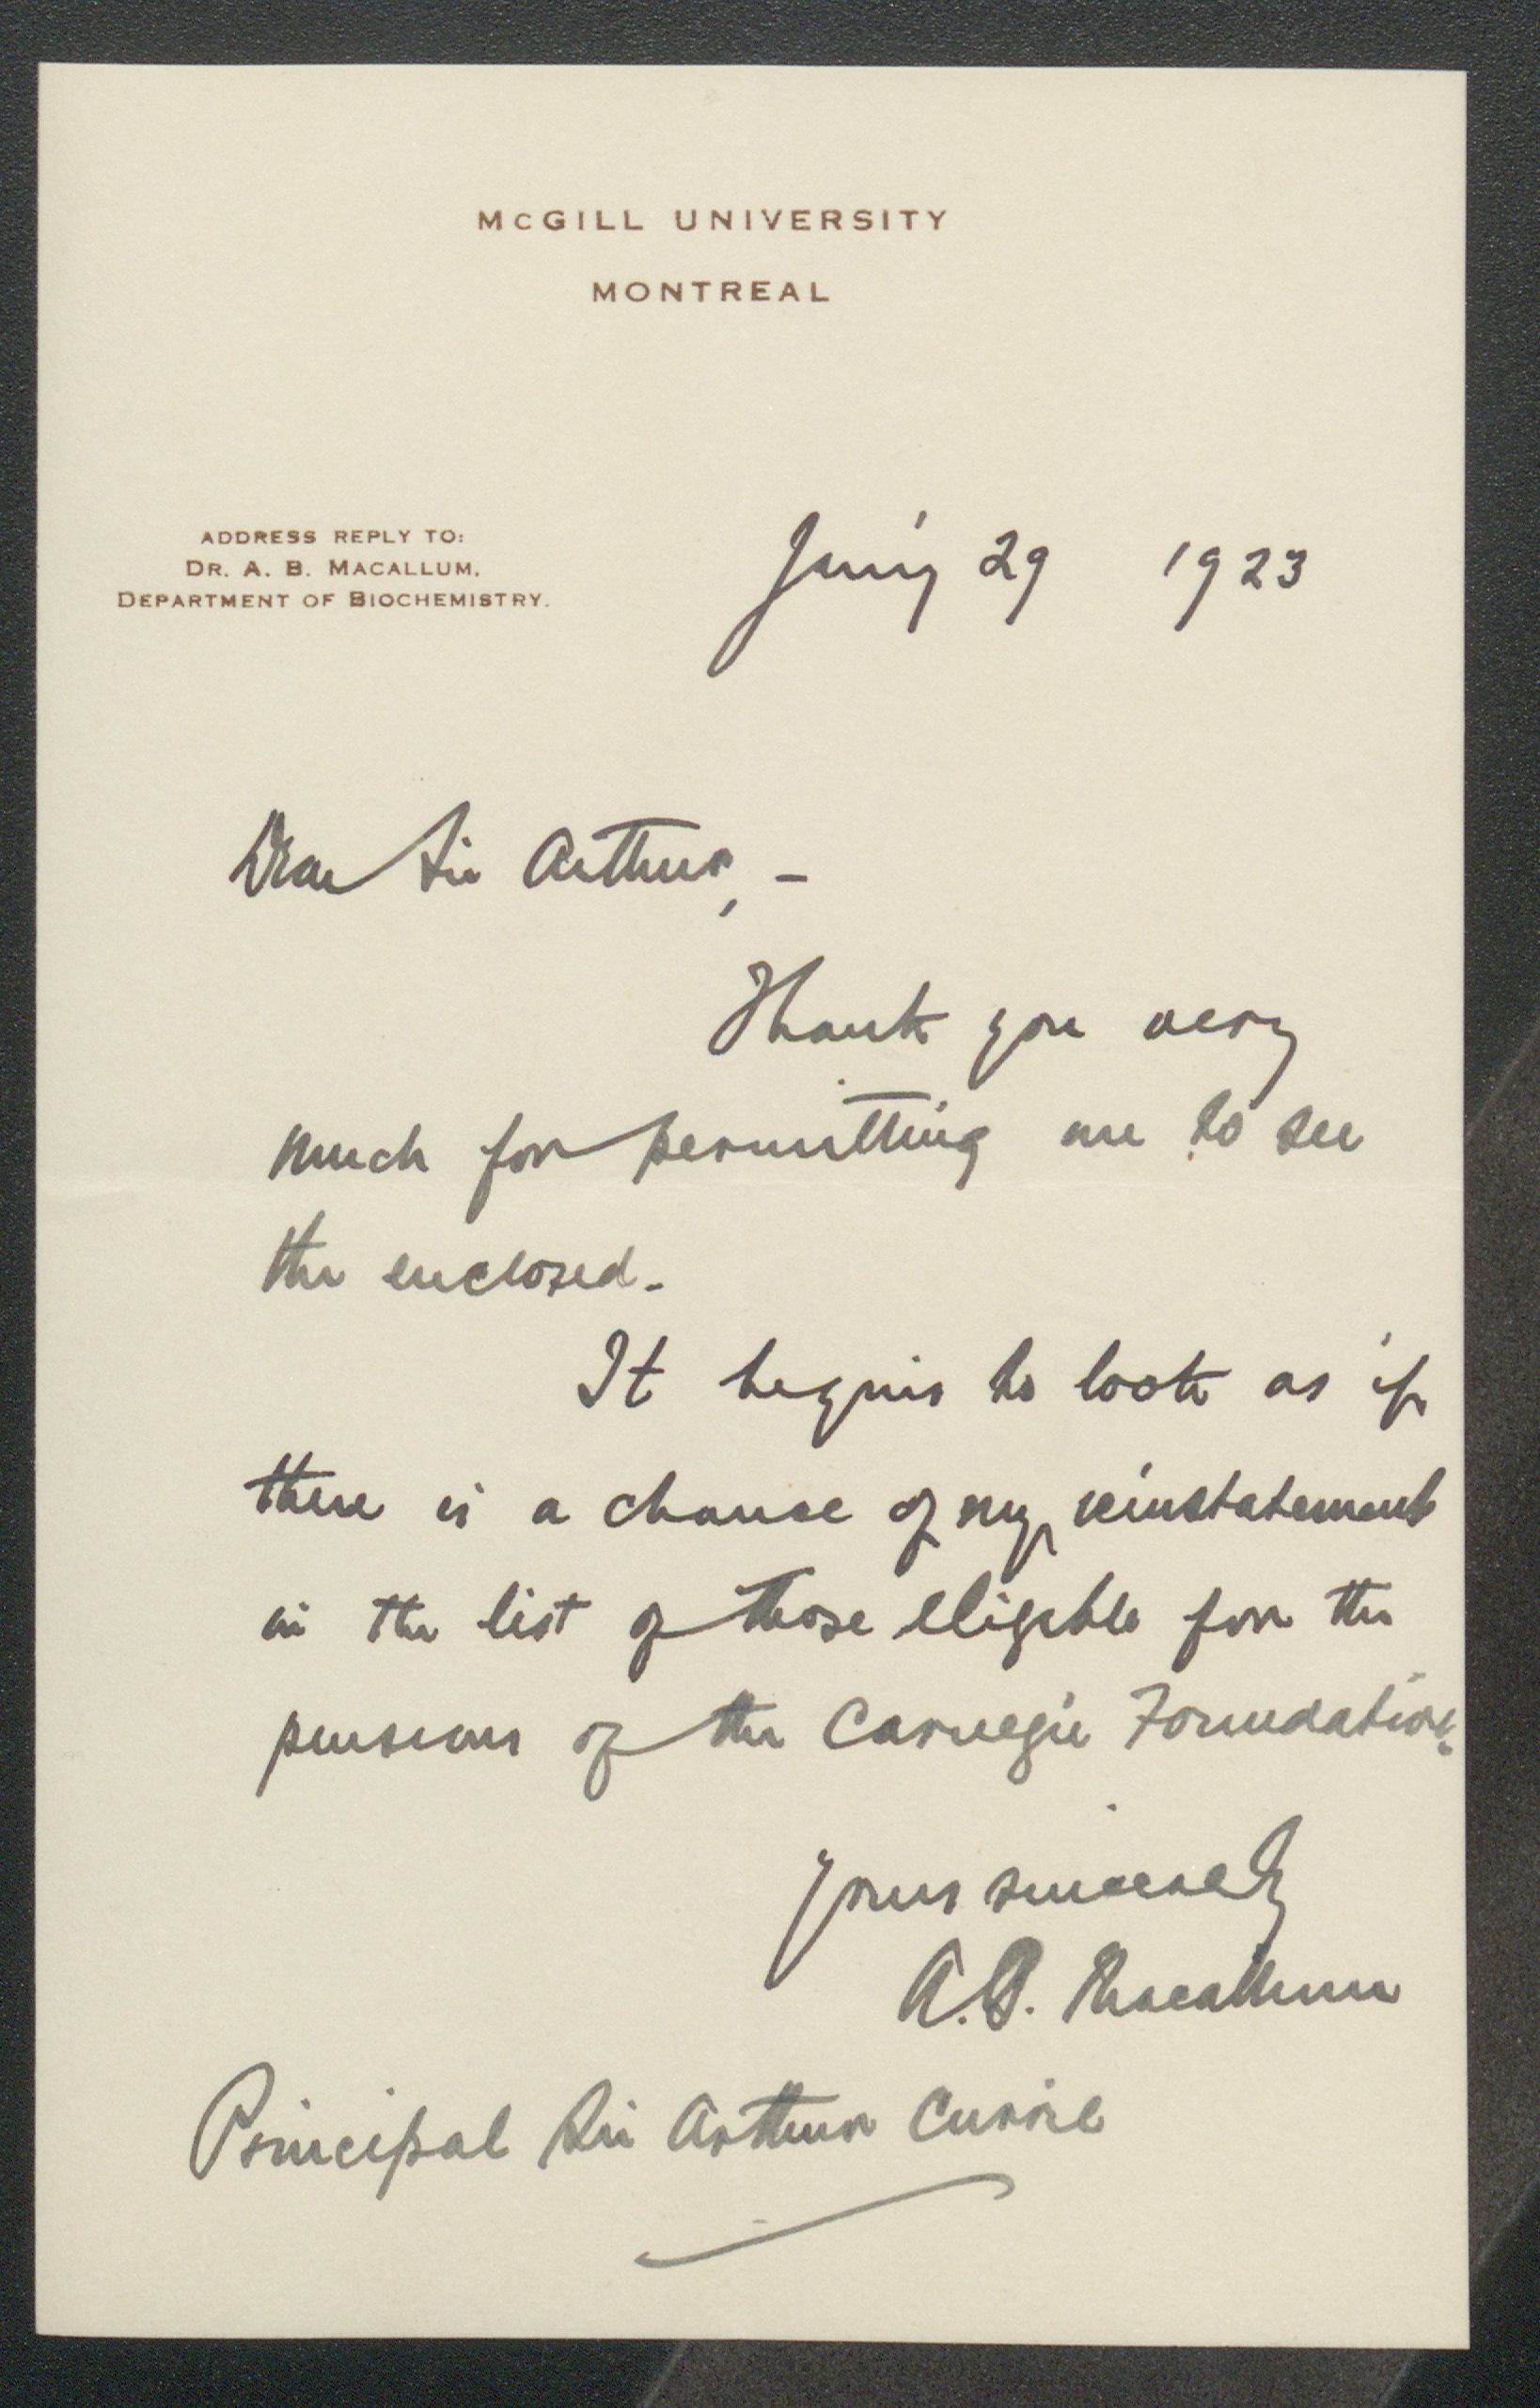 McGILL UNIVERSITY
MONTREAL
ADDRESS REPLY TO:
DR. A. B. MACALLUM,
DEPARTMENT OF BIOCHEMISTRY.
Jan'y 29 1923
Dear Sir Arthur, –
Thank you very
much for permitting me to see
the enclosed.
It begins to look as if
there is a chance of my reinstatement
in the list of those eligible for the
pensions of the Carnegie Foundation.
Yours sincerely
A.B. Macallum
Principal Sir Arthur Currie